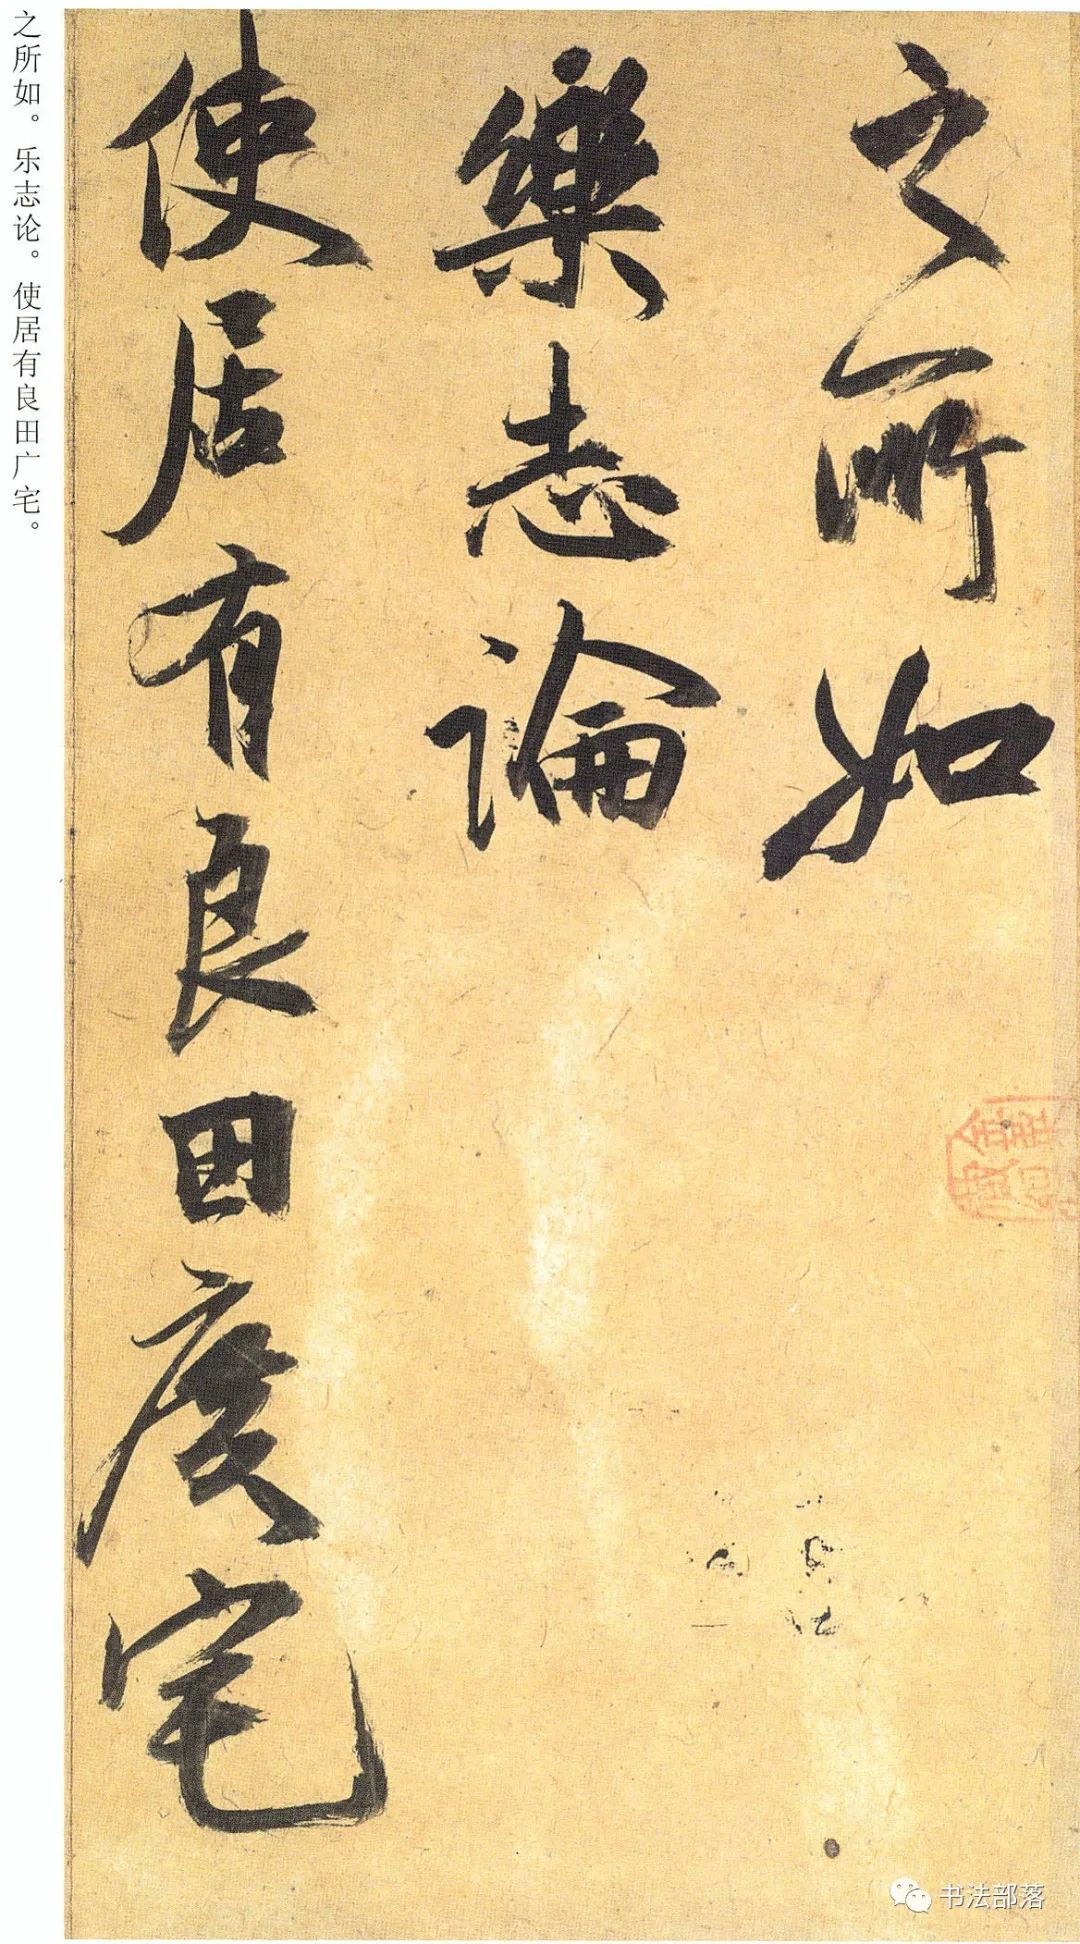 之所如
樂志論
使居有良田廣宅
之所如。乐志论。使居有良田广宅。
书法部落